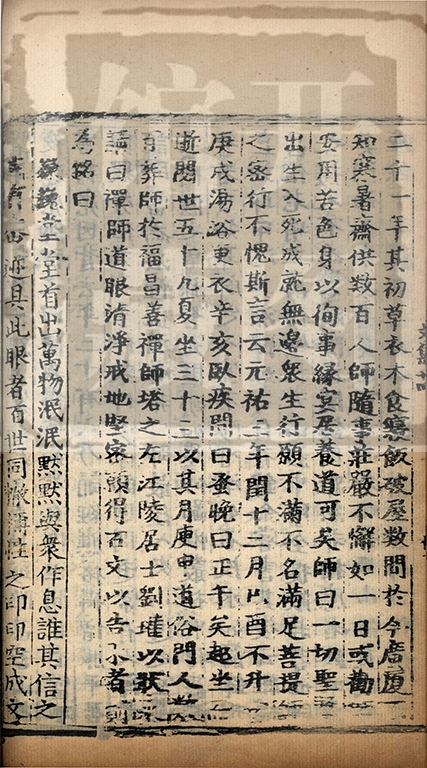 二十一年其初草衣木食寢飯破屋數間於今廣厦
知寒暑齋供數百人師隨事莊嚴不懈如一日或勸
安用苦色身以徇事緣宴居養道可矣師曰一切聖
出生入死成就無邊衆生行願不滿不名滿足菩提
之密行不愧斯言云元祐三年閏十二月 酉不升
庚戌湯浴更衣辛亥臥疾問曰蚤晚曰正午矣起坐
逝閱世五十九夏坐三十二以其月庚申道俗門人
葬師於福昌善禪師塔之左江陵居士劉 以狀
請曰禪師道眼清淨戒地堅密願得百文以告 者
為銘曰
堂堂首出萬物泯泯默默與衆作息誰其信之
具此眼者百世同轍 性之印印空成文